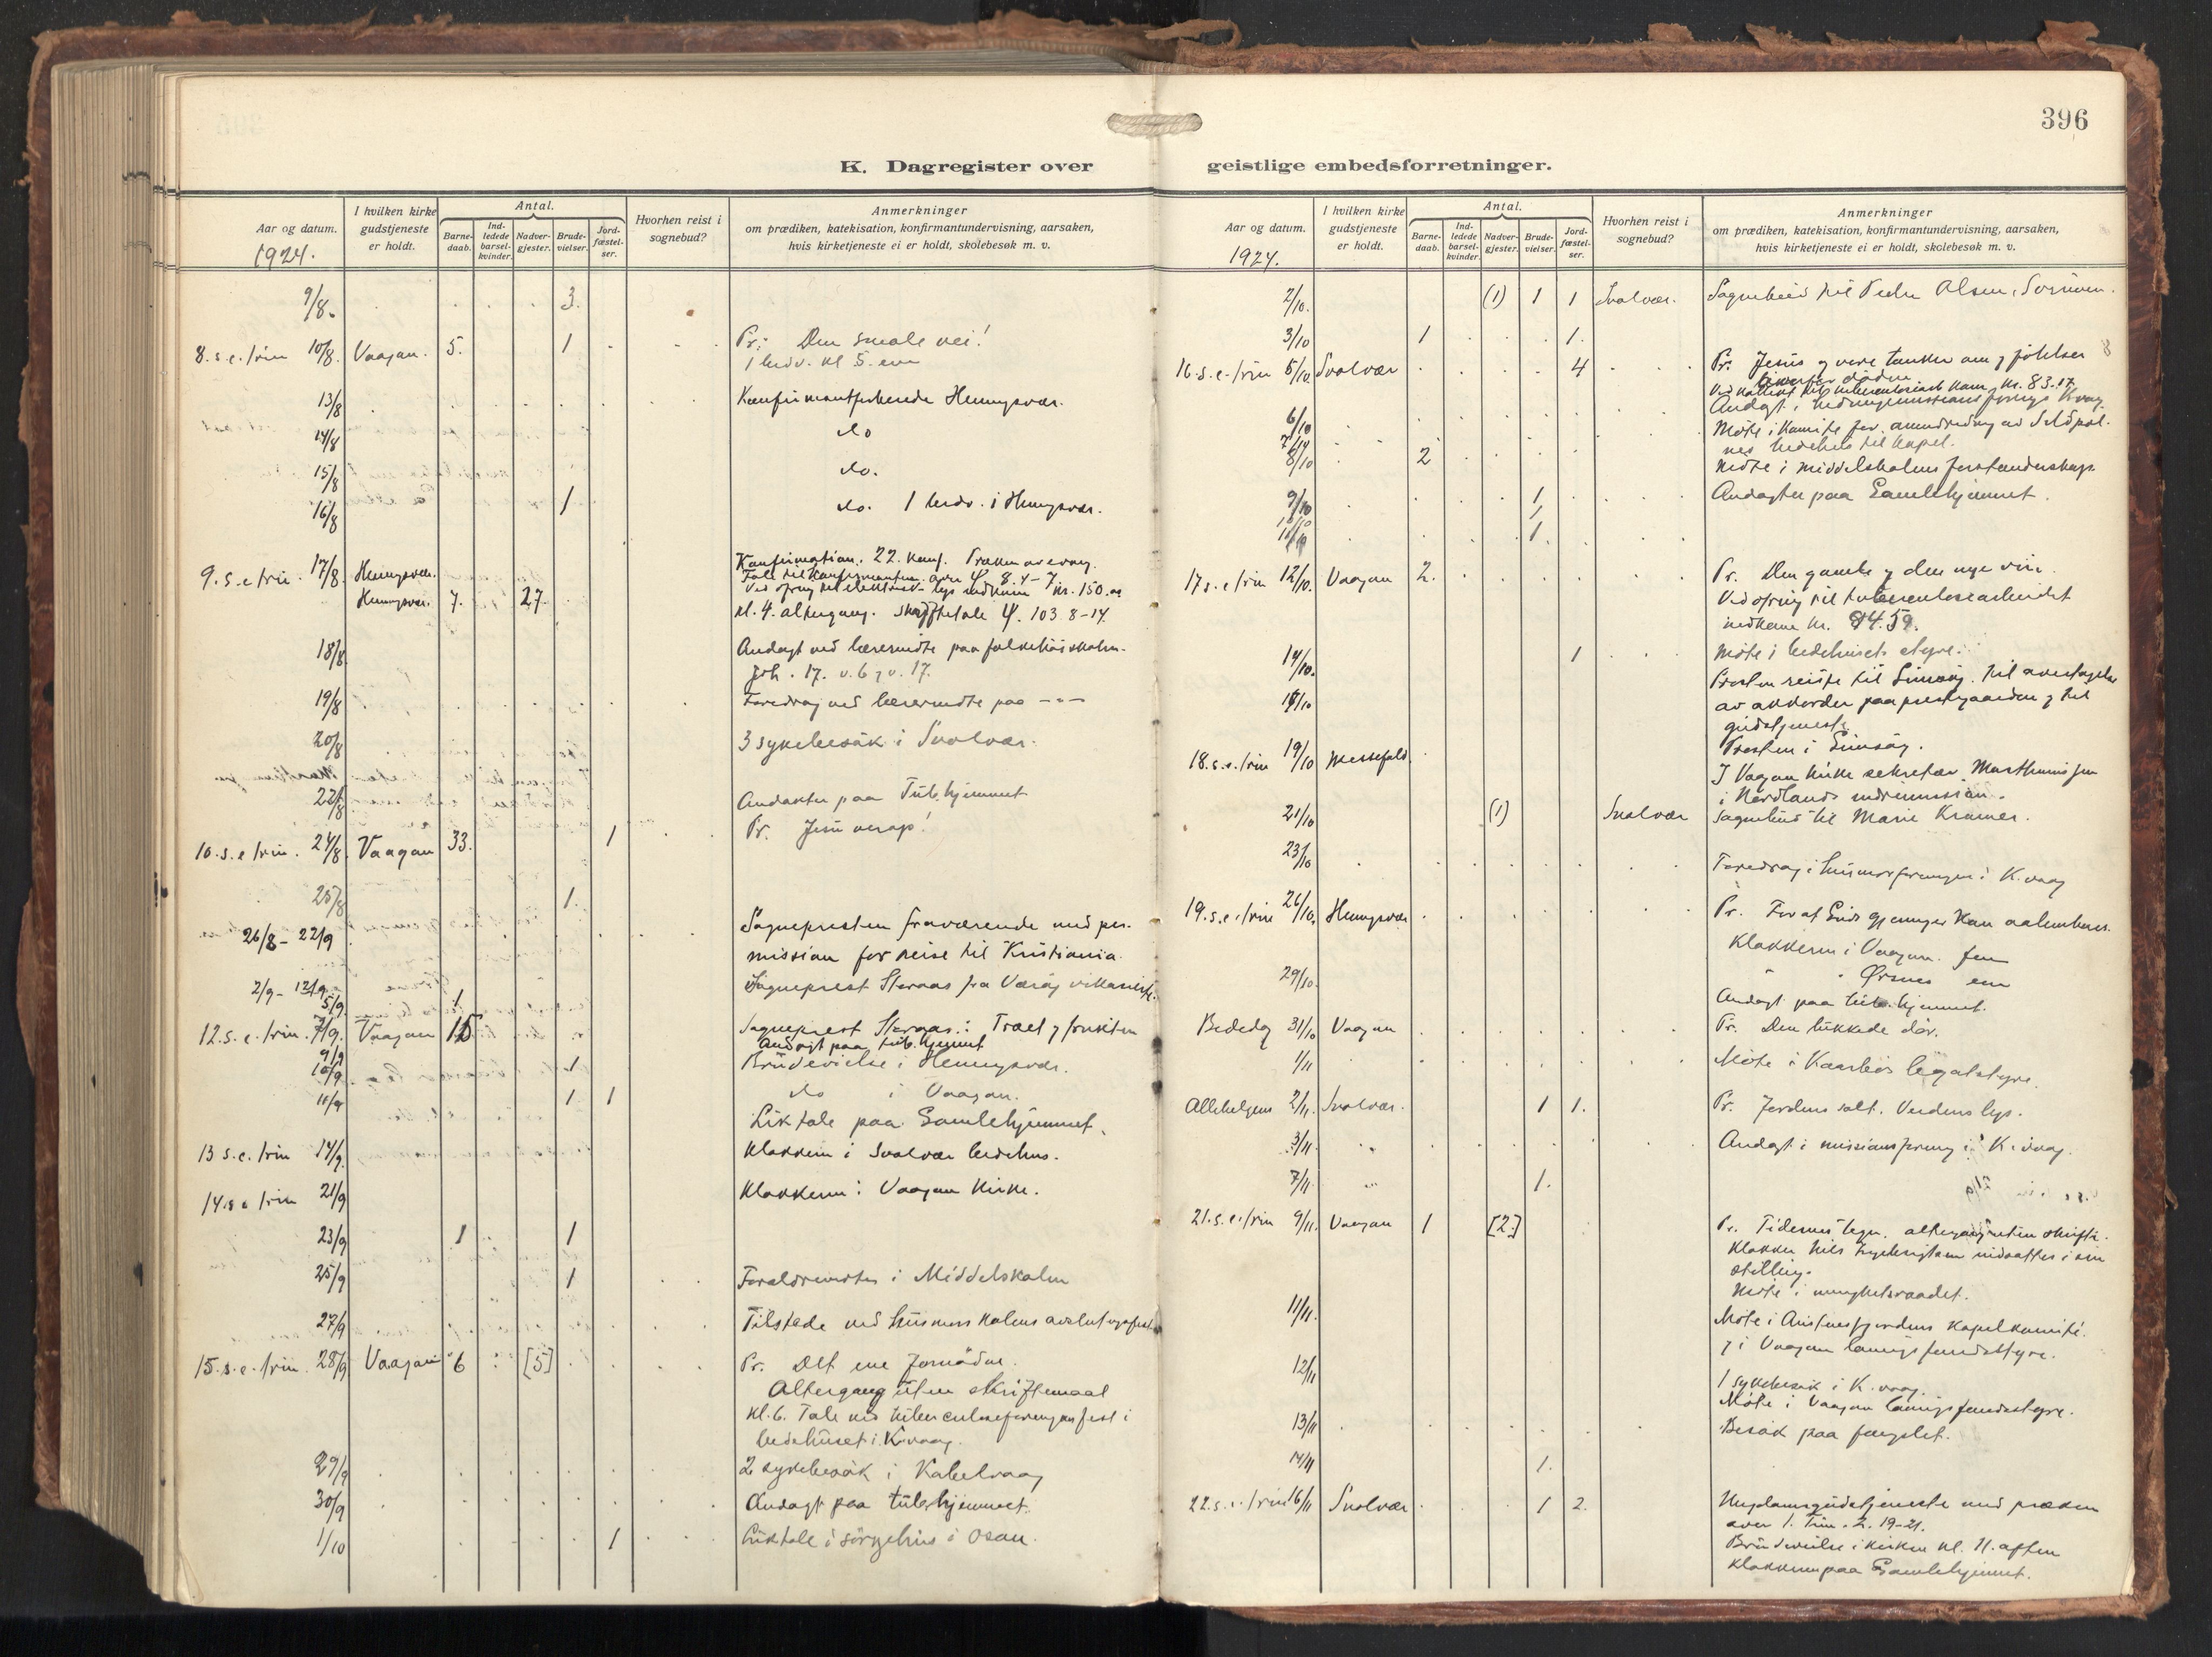 396
K. Dagregister over geistlige embedsforretninger.
Aar og datum.
1924.
I hvilken kirke gudstjeneste er holdt.
Antal.
Barne-daab.
Ind-ledede barsel-kvinder.
Nadver-gjester.
Brude-vielser.
Jord-fæstel-ser.
Hvorhen reist i sognebud?
Anmerkninger
om prædiken, katekisation, konfirmantundervisning, aarsaken,
hvis kirketjeneste ei er holdt, skolebesøk m. v.
9/8. 3.
8. s. e. trin 10/8. Vaagan. 5. 1 Pr: Den smale vei!
1 brdv. kl 5. em
13/8 Konfirmantforberede Henningsvær.
14/8 do
15/8 do.
16/8 1 do. 1 brdv. i Henningsvær.
9. s. e trin. 17/8. Henningsvær. Konfirmation. 22 konf.
Tale til konfirmanten over ψ 8. 4-7
Ved ofring til elektrisk lys indkom kr. 150.00
Henningsvær. 7. 27. kl. 4. altergang. Skriftetale ψ. 103 8-14
18/8 Andagt ved lærermøte paa folkehøiskolen.
Joh. 17. v. 6 og v. 17.
19/8 Foredrag ved lærermøte paa ---
20/8 3 sykebesøk i Svolvær.
22/8 Andakter paa Tub.hjemmet
10. s. e trin. 24/8. Vaagan 33. 1 Pr. Jesu verop!
25/8 1.
26/8 - 22/9 Sognepresten fraværende med per-
mission for reise til Kristiania.
2/9 - 12/9 Sogneprest Storaas fra Værøy vikarierte.
5/9. 1
12. s. e. trin. 7/9. Vaagan 15 Sogneprest Storaas: Træet og frukten
9/9 Andagt paa tub.hjemmet
10/9 1 Brudevielse i Henningsvær.
11/9 1 1 do i Vaagan.
Liktale paa Gamlehjemmet.
13 s. e. trin 14/9. Klokkeren i Svolvær bedehus.
14. s. e trin 21/9 Klokkeren i Vaagan kirke.
23/9 1 1
25/9 1 Forældremøte i Middelskolen
27/9 Tilstede ved husmorskolens avslutningsfest
15. s. e. trin. 28/9 Vaagan 6 [5] Pr. Det ene fornødne.
Altergang uten skriftemaal
kl. 6. Tale ved tuberculoseforeningens fest i
bedehuset i K.vaag.
29/9 2 sykebesøk i Kabelvaag
30/9 Andagt paa tub.hjemmet.
1/10 1 Liktale i sørgehus i Osan.
Aar og datum.
1924.
I hvilken kirke gudstjeneste er holdt.
Antal.
Barne-daab.
Ind-ledede barsel-kvinder.
Nadver-gjester.
Brude-vielser.
Jord-fæstel-ser.
Hvorhen reist i sognebud?
Anmerkninger
om prædiken, katekisation, konfirmantundervisning, aarsaken,
hvis kirketjeneste ei er holdt, skolebesøk m. v.
2/10. (1) 1 1 Svolvær. Sognebud til Peder Olsen,
3/10 1 1.
16. s. e. trin 5/10. Svolvær 4 Pr. Jesus og vore tanker om
tuberkulosearb. kom kr. 83.17
Andagt i hedningemissionsforening K.vaag.
6/10 Møte i komite for omændring av Sildpol-
7/10 nes bedehus til kapel.
8/10 2 Møte i middelskolens forstanderskap
9/10 1 Andagter paa Gamlehjemmet.
10/10 1
11/10 1.
17 s. e trin 12/10. Vaagan 2. Pr. Den gamle og den nye vin.
Ved ofring til tuberculosearbeidet
indkom kr. 84.59.
14/10. 1 Møte i bedehusets styre.
18/10 Presten reiste til Gimsøy til avertagelse
av akkorder paa prestegaarden og til
gudstjeneste.
18. s. e. trin 19/10 Messefald. Presten i Gimsøy.
I Vagan kirke sekretær Marthinussen
i Nordlands indremission.
21/10 (1) Svolvær Sognebud til Marie Kramer.
23/10 Foredrag i husmorforeningen i K.vaag
19. s. e. trin 26/10. Henningsvær Pr. For at Guds gjerninger kan aabenbares.
Klokkeren i Vaagan. fm
" " Ørsnes em
29/10. Andagt paa tub.hjemmet.
Bededag 31/10 Vaagan Pr. Den lukkede dør.
1/11 Møte i Kaarbøs legatstyre.
Allehelgens 2/11. Svolvær. 1 1. Pr. Jordens salt. Verdens lys.
3/11. Andagt i missionsforening i K.vaag.
7/11 1.
21. s. e. trin 9/11. Vaagan 1 [2.] Pr. Tidernes tegn. altergang uten skrifte.
Klokker Nils indsattes i sin
stilling.
Møte i menighetsraadet.
11/11. Møte i Austnesfjordens kapelkomité.
og i Vaagan
12/11 1 sykebesøk i K.vaag.
Møte i Vaagan
13/11 Besøk paa fængslet.
14/11 1.
22. s. e. trin 16/11 Svolvær 1 2. Ungdomsgudstjeneste med præken
over 1. Tim. 2. 19-21.
Brudevielse i kirken kl. 11. aften
Klokkeren paa Gamlehjemmet.